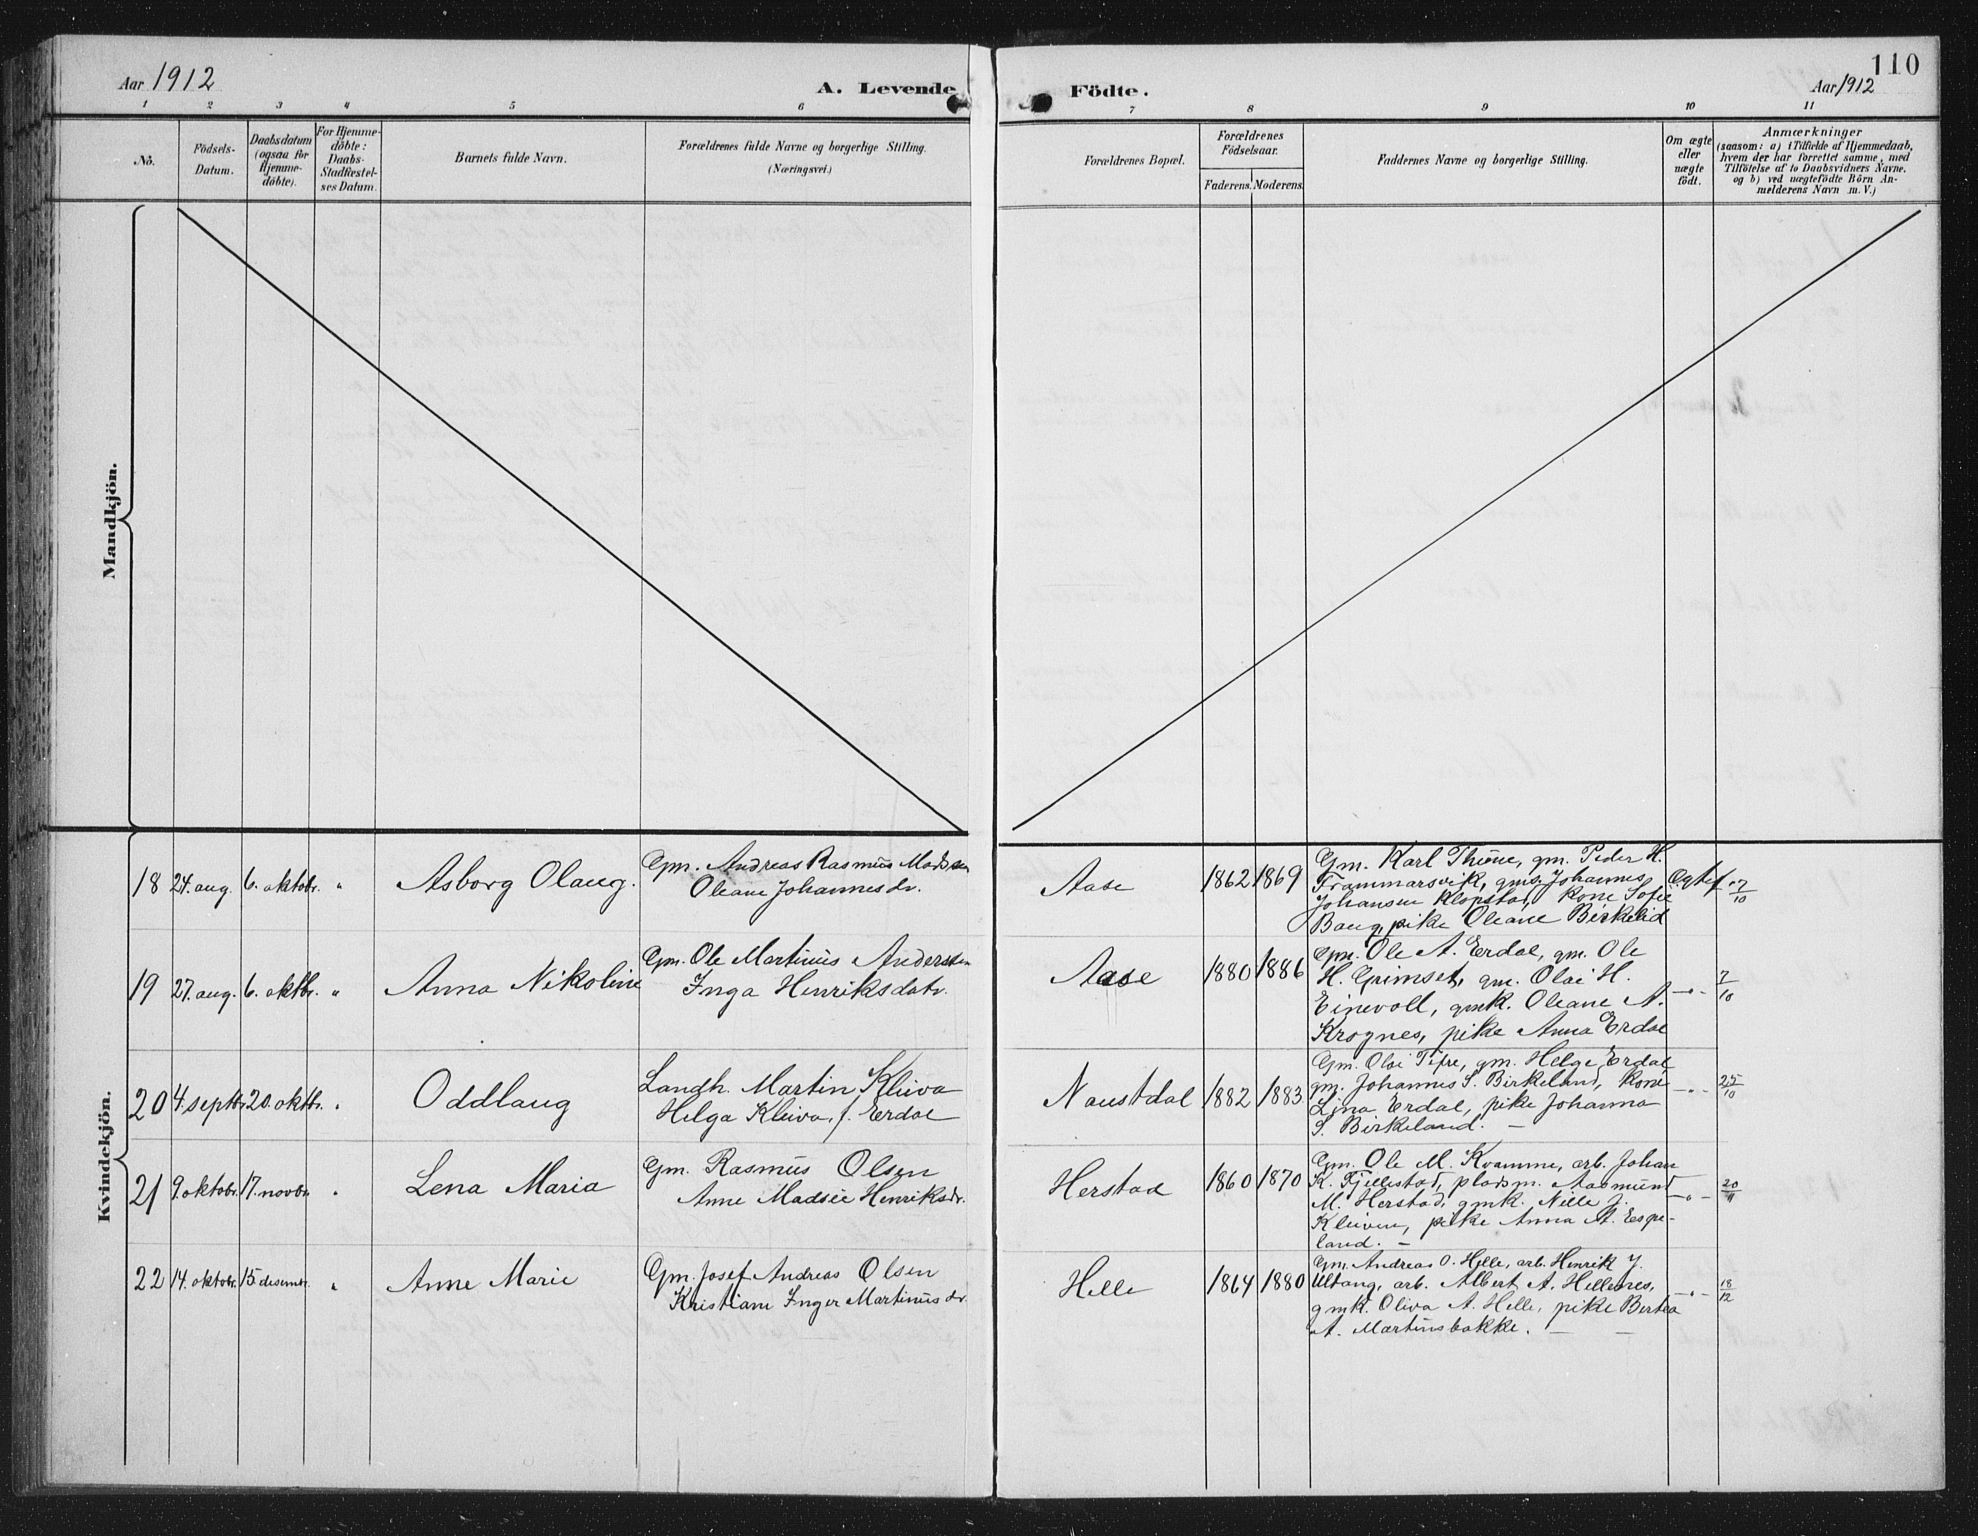 Aar 1912
A. Levende
Födte.
110
Aar 1912
1 2 3 4 5 6 7 8 9 10 11
No.
Födsels-
Datum.
Daabsdatum
(ogsaa for
Hjemme-
döbte).
For Hjemme-
döbte:
Daabs-
Stadfæstel-
ses Datum.
Barnets fulde Navn.
Forældrenes fulde Navne og borgerlige Stilling.
(Næringsvei.)
Forældrenes Bopæl.
Forældrenes
Födselsaar.
Faderens. Moderens.
Faddernes Navne og borgerlige Stilling.
Om ægte
eller
uægte
födt.
Anmærkninger
(saasom: a) i Tilfælde af Hjemmedaab,
hvem der har forrettet samme, med
Tilföielse af to Daabsvidners Navne.
og b) ved uægtefödte Börn An-
melderens Navn m. V.)
Mandkjön.
Kvindekjön.
18 24. aug. 6. oktobr. " Asborg Olaug.
Gm. Andreas Rasmus Madsen
Oleane Johannesdr.
Aase 1862 1869
Gm. Karl Thune, gm. Peder H.
Frammarsvik, gms. Johannes
Johansen Klopstad, kone Sofie
Baug, pike Oleane Birkelid
Egtef. 7/10
19 27. aug. 6. oktbr. " Anna Nikoline
Gm. Ole Martinus Andersen
Inga Henriksdatr.
Aase 1880 1886
Gm. Ole A. Erdal, gm. Ole
H. Grimset, gm. Olai H.
Einevoll, gmk. Oleane A.
Krognes, pike Anna Erdal
-"- 7/10
20 4. septbr. 20. oktbr. " Oddlaug
Landh. Martin Kleiva
Helga Kleiva, f. Erdal
Naustdal 1882 1883
Gm. Olai Tefre, gm. Helge Erdal
gm. Johannes S. Birkeland, kone
Lina Erdal, pike Johanna
S. Birkeland. -
-"- 25/10
21 9. oktobr. 17. novbr. " Lena Maria
Gm. Rasmus Olsen
Anne Madsie Henriksdr.
Herstad 1860 1870
Gm. Ole M. Kvamme, arb. Johan
K. Fjellestad, pladsm. Aasmund
M. Herstad, gmk. Nille J.
Kleiven, pike Anna A. Espe-
land. -
-"- 20/11
22 14. oktobr. 15 desembr. " Anne Marie
Gm. Josef Andreas Olsen
Kristiane Inger Martinusdr.
Helle 1864 1880
Gm. Andreas O. Helle, arb. Henrik J.
Ultang, arb. Albert A. Hellenes,
gmk. Oliva A. Helle, pike Bertea
A. Martinsbakke. - -
-"- 18/12